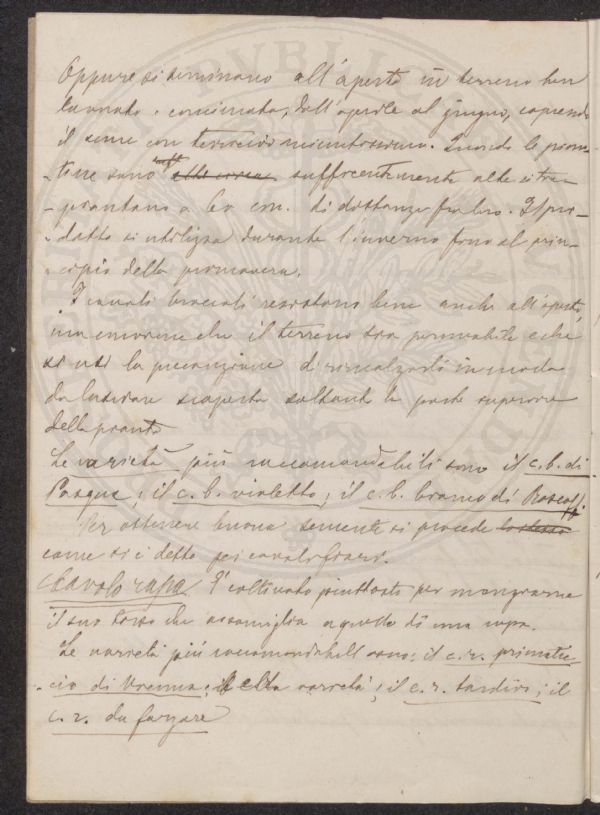 Oppure si seminano all'aperto in terreno ben
lavorato e concimato, dall'aprile al giugno, coprendo
il seme con terriccio minutissimo. Quando le pian-
tine sono suffic entemente alte si tra-
piantano a 60 cm. di distanza fra loro. Il pro-
dotto si utilizza durante l'inverno fino al prin-
cipio della primavera.
I cavoli broccoli resistono bene anche all'aperto,
ma conviene che il terreno sia permeabile e che
si usi la precauzione di rincalzarli in modo
da lasciare scoperta soltanto la parte superiore
della pianta
Le varietà più raccomandabili sono il c. b. di
Pasqua; il c. b. violetto; il c. b. bianco di
Per ottenere buona semente si procede lo stesso
come si è detto pei cavolifiori.
Cavolo rapa. È coltivato piuttosto per mangiarne
il suo torso che assomiglia a quello di una rapa.
Le varietà più raccomandabili sono: il c. r. primatic-
cio di Vienna; varietà; il c. r. tardivo; il
c. r. da forzare